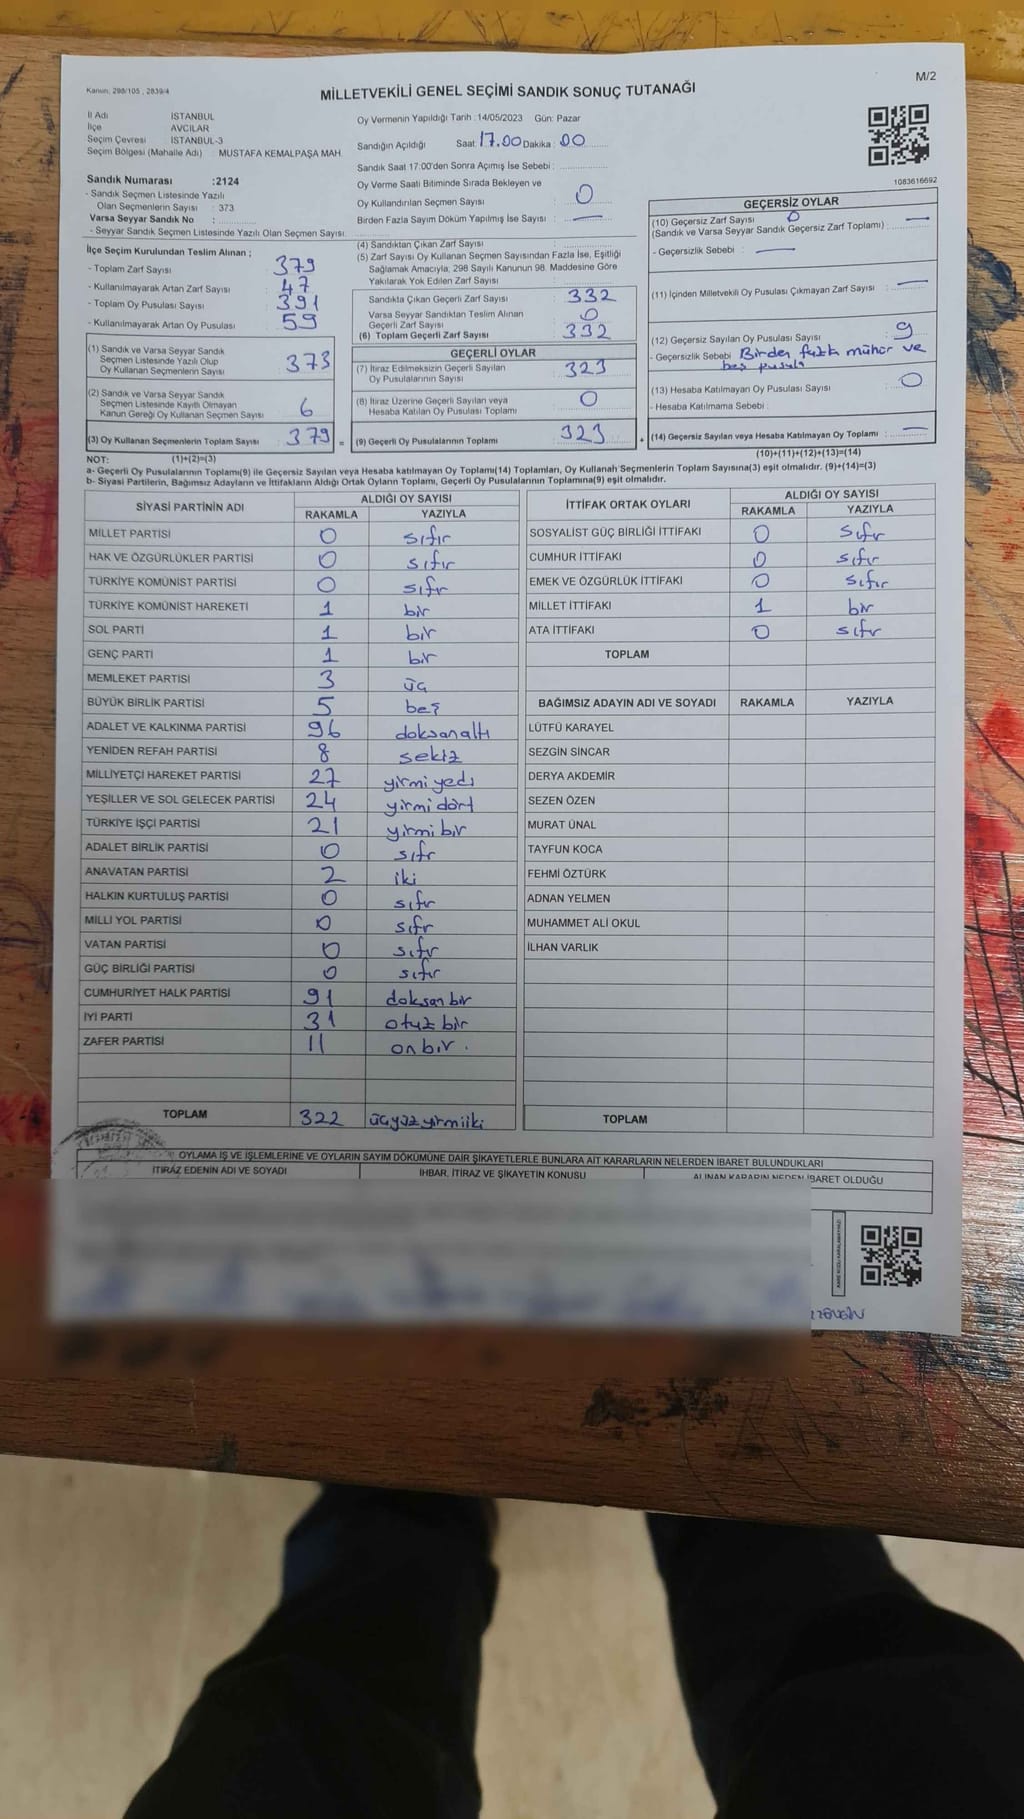 M/2
Kanun, 298/105 , 2839/4
MİLLETVEKİLİ GENEL SEÇİMİ SANDIK SONUÇ TUTANAĞI
İl Adı İSTANBUL
İlçe AVCILAR
Seçim Çevresi İSTANBUL-3
Seçim Bölgesi (Mahalle Adı) : MUSTAFA KEMALPAŞA MAH.
Oy Vermenin Yapıldığı Tarih :14/05/2023 Gün: Pazar
Sandığın Açıldığı Saat: 17.00 Dakika : 00
Sandık Saat 17:00'den Sonra Açımış İse Sebebi :
Sandık Numarası :2124
- Sandık Seçmen Listesinde Yazılı
Olan Seçmenlerin Sayısı : 373
Varsa Seyyar Sandık No :
- Seyyar Sandık Seçmen Listesinde Yazılı Olan Seçmen Sayısı:
Oy Verme Saati Bitiminde Sırada Bekleyen ve
Oy Kullandırılan Seçmen Sayısı : 0
Birden Fazla Sayım Döküm Yapılmış İse Sayısı : —
1083616692
İlçe Seçim Kurulundan Teslim Alınan ;
- Toplam Zarf Sayısı : 379
- Kullanılmayarak Artan Zarf Sayısı : 47
- Toplam Oy Pusulası Sayısı : 391
- Kullanılmayarak Artan Oy Pusulası : 59
(1) Sandık ve Varsa Seyyar Sandık
Seçmen Listesinde Yazılı Olup
Oy Kullanan Seçmenlerin Sayısı : 373
(2) Sandık ve Varsa Seyyar Sandık
Seçmen Listesinde Kayıtlı Olmayan
Kanun Gereği Oy Kullanan Seçmen Sayısı : 6
(3) Oy Kullanan Seçmenlerin Toplam Sayısı : 379 =
(4) Sandıktan Çıkan Zarf Sayısı :
(5) Zarf Sayısı Oy Kullanan Seçmen Sayısından Fazla İse, Eşitliği
Sağlamak Amacıyla, 298 Sayılı Kanunun 98. Maddesine Göre
Yakılarak Yok Edilen Zarf Sayısı :
Sandıkta Çıkan Geçerli Zarf Sayısı : 332
Varsa Seyyar Sandıktan Teslim Alınan
Geçerli Zarf Sayısı : 0
(6) Toplam Geçerli Zarf Sayısı : 332
GEÇERLİ OYLAR
(7) İtiraz Edilmeksizin Geçerli Sayılan
Oy Pusulalarının Sayısı : 323
(8) İtiraz Üzerine Geçerli Sayılan veya
Hesaba Katılan Oy Pusulası Toplamı : 0
(9) Geçerli Oy Pusulalarının Toplamı : 323 +
GEÇERSİZ OYLAR
(10) Geçersiz Zarf Sayısı 0
(Sandık ve Varsa Seyyar Sandık Geçersiz Zarf Toplamı) : —
- Geçersizlik Sebebi : —
(11) İçinden Milletvekili Oy Pusulası Çıkmayan Zarf Sayısı : —
(12) Geçersiz Sayılan Oy Pusulası Sayısı : 9
- Geçersizlik Sebebi Birden fazla mühür ve
boş pusula
(13) Hesaba Katılmayan Oy Pusulası Sayısı : 0
- Hesaba Katılmama Sebebi :
(14) Geçersiz Sayılan veya Hesaba Katılmayan Oy Toplamı : —
NOT: (1)+(2)=(3) (10)+(11)+(12)+(13)=(14)
a- Geçerli Oy Pusulalarının Toplamı(9) ile Geçersiz Sayılan veya Hesaba katılmayan Oy Toplamı(14) Toplamları, Oy Kullanan Seçmenlerin Toplam Sayısına(3) eşit olmalıdır. (9)+(14)=(3)
b- Siyasi Partilerin, Bağımsız Adayların ve İttifakların Aldığı Ortak Oyların Toplamı, Geçerli Oy Pusulalarının Toplamına(9) eşit olmalıdır.
SİYASİ PARTİNİN ADI ALDIĞI OY SAYISI
RAKAMLA YAZIYLA
MİLLET PARTİSİ 0 sıfır
HAK VE ÖZGÜRLÜKLER PARTİSİ 0 sıfır
TÜRKİYE KOMÜNİST PARTİSİ 0 sıfır
TÜRKİYE KOMÜNİST HAREKETİ 1 bir
SOL PARTİ 1 bir
GENÇ PARTİ 1 bir
MEMLEKET PARTİSİ 3 üç
BÜYÜK BİRLİK PARTİSİ 5 beş
ADALET VE KALKINMA PARTİSİ 96 doksanaltı
YENİDEN REFAH PARTİSİ 8 sekiz
MİLLİYETÇİ HAREKET PARTİSİ 27 yirmiyedi
YEŞİLLER VE SOL GELECEK PARTİSİ 24 yirmidört
TÜRKİYE İŞÇİ PARTİSİ 21 yirmi bir
ADALET BİRLİK PARTİSİ 0 sıfır
ANAVATAN PARTİSİ 2 iki
HALKIN KURTULUŞ PARTİSİ 0 sıfır
MİLLİ YOL PARTİSİ 0 sıfır
VATAN PARTİSİ 0 sıfır
GÜÇ BİRLİĞİ PARTİSİ 0 sıfır
CUMHURİYET HALK PARTİSİ 91 doksan bir
İYİ PARTİ 31 otuz bir
ZAFER PARTİSİ 11 on bir.
TOPLAM 322 üçyüzyirmiiki
İTTİFAK ORTAK OYLARI ALDIĞI OY SAYISI
RAKAMLA YAZIYLA
SOSYALİST GÜÇ BİRLİĞİ İTTİFAKI 0 sıfır
CUMHUR İTTİFAKI 0 sıfır
EMEK VE ÖZGÜRLÜK İTTİFAKI 0 sıfır
MİLLET İTTİFAKI 1 bir
ATA İTTİFAKI 0 sıfır
TOPLAM
BAĞIMSIZ ADAYIN ADI VE SOYADI RAKAMLA YAZIYLA
LÜTFÜ KARAYEL
SEZGİN SİNCAR
DERYA AKDEMİR
SEZEN ÖZEN
MURAT ÜNAL
TAYFUN KOCA
FEHMİ ÖZTÜRK
ADNAN YELMEN
MUHAMMET ALİ OKUL
İLHAN VARLIK
TOPLAM
OYLAMA İŞ VE İŞLEMLERİNE VE OYLARIN SAYIM DÖKÜMÜNE DAİR ŞİKAYETLERLE BUNLARA AİT KARARLARIN NELERDEN İBARET BULUNDUKLARI
İTİRAZ EDENİN ADI VE SOYADI İHBAR, İTİRAZ VE ŞİKAYETİN KONUSU ALINAN KARARIN NEDEN İBARET OLDUĞU